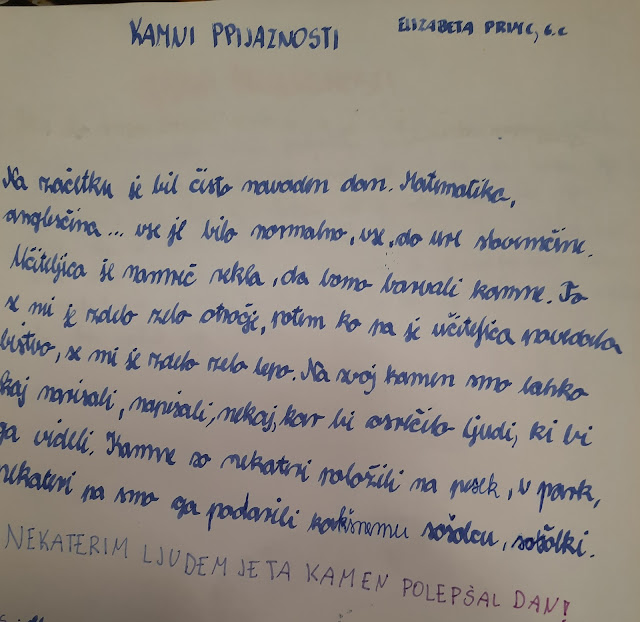 KAMNI PRIJAZNOSTI
ELIZABETA PRIMC, 6.c
Na začetku je bil čisto navaden dan. Matematika,
angleščina... vse je bilo normalno, vse, do ure slovenščine.
Učiteljica je namreč rekla, da bomo barvali kamne. To
se mi je zdelo zelo otročje, potem ko pa je učiteljica povedala
bistvo, se mi je zdelo zelo lepo. Na svoj kamen smo lahko
kaj narisali, napisali, nekaj, kar bi osrečilo ljudi, ki bi
ga videli. Kamne so nekateri položili na pesek, v park,
nekateri pa smo ga podarili kakšnemu sošolcu, sošolki.
NEKATERIM LJUDEM JE TA KAMEN POLEPŠAL DAN!